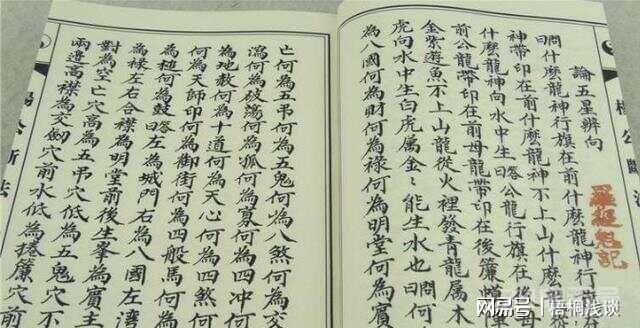 論五星辨向
羅經
記
問什麼龍神行旗在前什麼龍神行
神帶印在前什麼龍神不上山什麼
什麼龍神向水中生答公龍行旗在後
前公龍帶印在前母龍帶印在後簾
金紫遊魚不上山龍從火裡發青龍屬木
虎向水中生白虎屬金〻能生水也問何
為八國何為財何為祿何為明堂何為賓
亡何為五吊何為五鬼何為八煞何為
瀉何為破蕩何為孤何為寡何為四冲何
為地教何為十道何為天心何為四煞
何為天師印何為御街何為四般馬何為
為槌何為鼓答左為城門右為八國左
為祿左右合襟為明堂前後生峯為賓主
對為空亡穴高為五吊穴低為五鬼穴不
兩邊高襟為交劍穴前水低為捲簾穴前
楊公斷法
网易号 | 梧桐浅谈